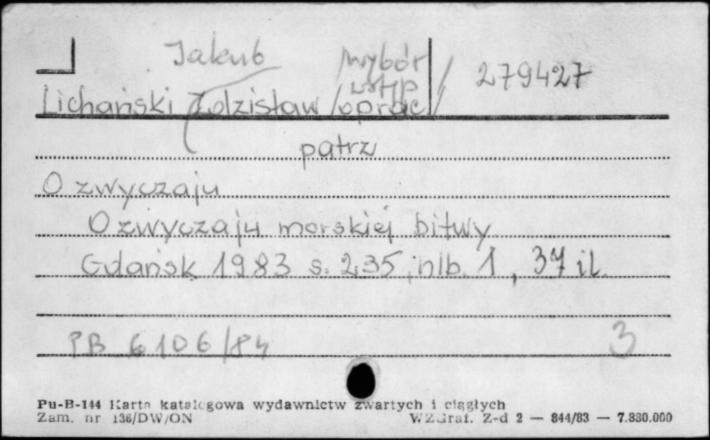 Jakub /wybór
wstęp / 279427
Lichański Zdzisław /oprac/
patrz
O zwyczaju
O zwyczaju morskiej bitwy
Gdańsk 1983 s. 235, nlb. 1, 37 il.
PB 6106/84 3
Pu-B-144 Karta katalogowa wydawnictw zwartych i ciągłych
Zam. nr 136/DW/ON WZGraf. Z-d 2 — 844/83 — 7.830.000